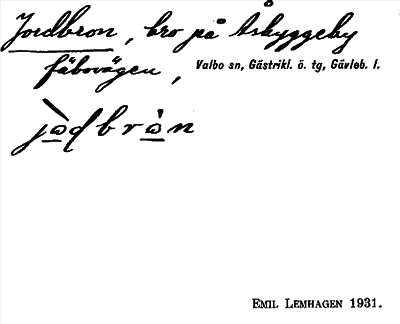 Jordbron, bro på Åsbyggeby
fäbovägen, Valbo sn, Gästrikl. ö. tg, Gävleb. l.
jòdbròn
EMIL LEMHAGEN 1931.